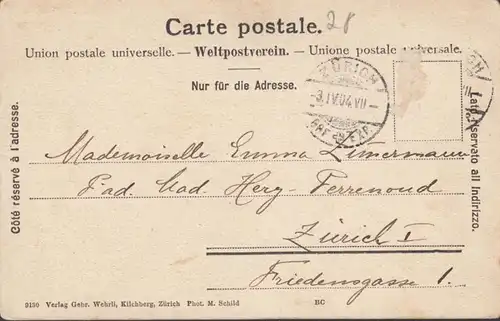 Carte postale. 28
Union postale universelle. — Weltpostverein. — Unione postale universale.
Nur für die Adresse.
ZÜRICH
3.IV.04 VII
BRF. EXP.
Côté réservé à l'adresse.
Lato riservato all indirizzo.
Mademoiselle Emma Zimermann
Pad. Mad Herz-Perrenoud
Zürich I
Friedensgasse 1.
9150 Verlag Gebr. Wehrli, Kilchberg, Zürich Phot. M. Schild BC